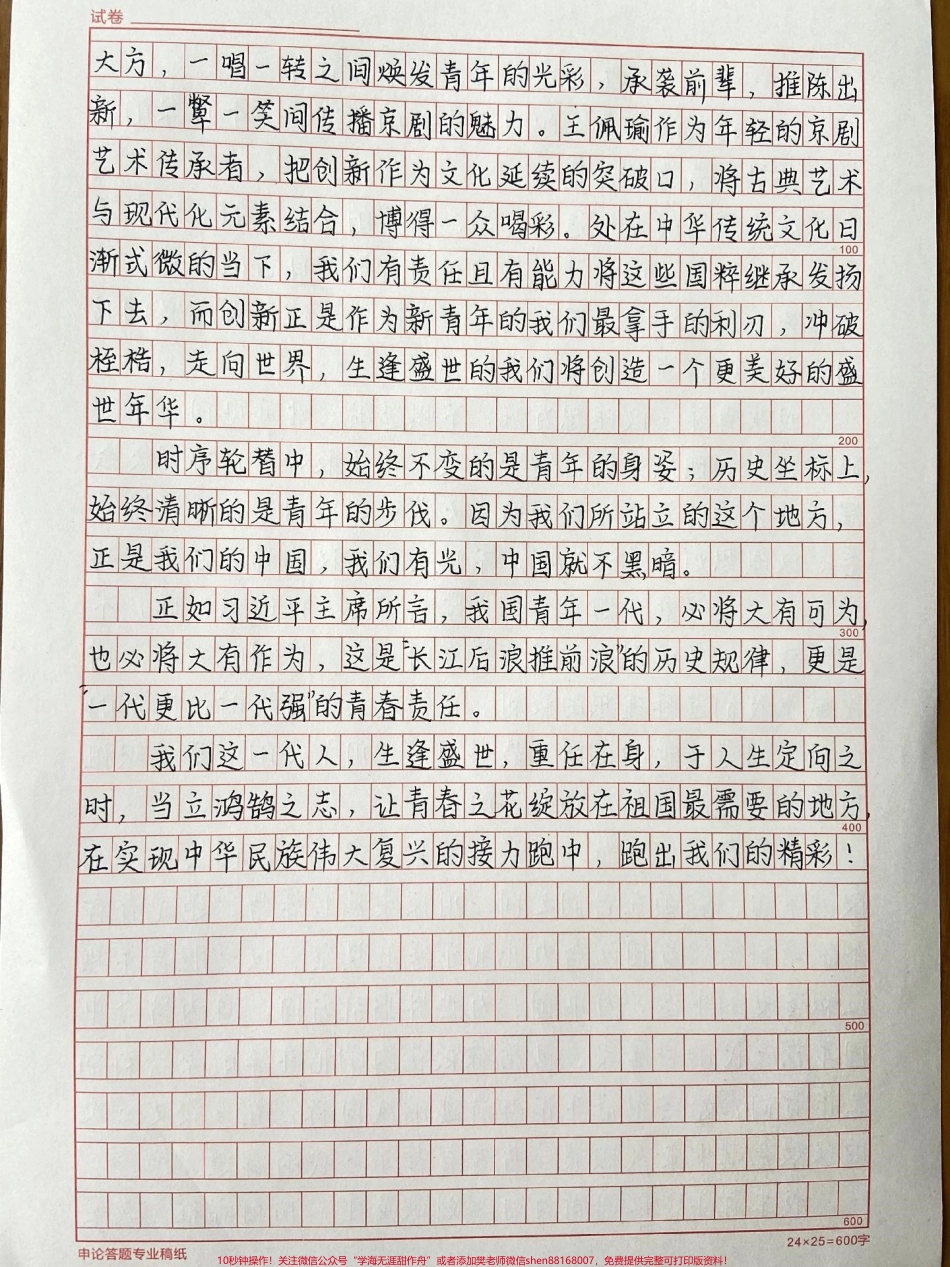 试卷
大方，一唱一转之间焕发青年的光彩，承袭前辈，推陈出
新，一颦一笑间传播京剧的魅力。王佩瑜作为年轻的京剧
艺术传承者，把创新作为文化延续的突破口，将古典艺术
与现代化元素结合，博得一众喝彩。处在中华传统文化日
100
渐式微的当下，我们有责任且有能力将这些国粹继承发扬
下去，而创新正是作为新青年的我们最拿手的利刃，冲破
桎梏，走向世界，生逢盛世的我们将创造一个更美好的盛
世年华。
200
时序轮替中，始终不变的是青年的身姿；历史坐标上，
始终清晰的是青年的步伐。因为我们所站立的这个地方，
正是我们的中国，我们有光，中国就不黑暗。
正如习近平主席所言，我国青年一代，必将大有可为，
300
也必将大有作为，这是“长江后浪推前浪”的历史规律，更是
“一代更比一代强”的青春责任。
我们这一代人，生逢盛世，重任在身，于人生定向之
时，当立鸿鹄之志，让青春之花绽放在祖国最需要的地方，
400
在实现中华民族伟大复兴的接力跑中，跑出我们的精彩！
500
600
申论答题专业稿纸
24×25=600字
10秒钟操作！关注微信公众号“学海无涯甜作舟”或者添加樊老师微信shen88168007，免费提供完整可打印版资料！